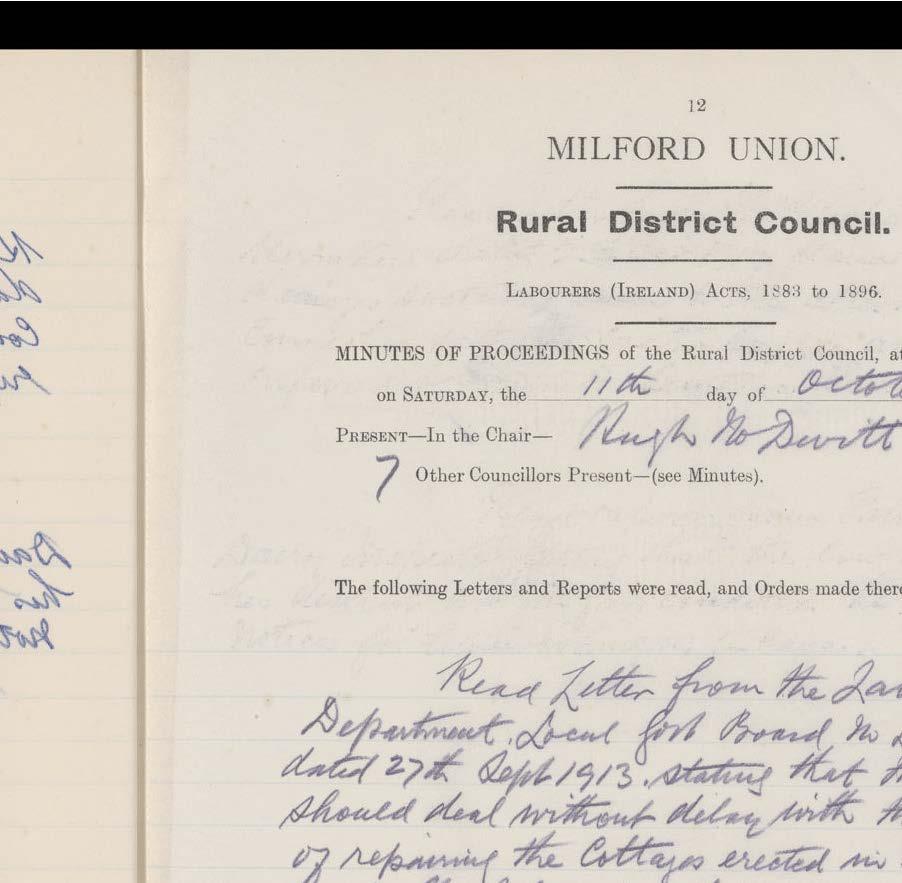 12
MILFORD UNION.
Rural District Council.
LABOURERS (IRELAND) ACTS, 1883 to 1896.
MINUTES OF PROCEEDINGS of the Rural District Council, at
on SATURDAY, the 11th day of Octo
PRESENT—In the Chair— Hugh McDevitt
7 Other Councillors Present—(see Minutes).
The following Letters and Reports were read, and Orders made there
Read Letter from the
Department. Local Govt Board No
dated 27th Sept 1913. stating that
should deal without delay with th
of repairing the Cottages erected in